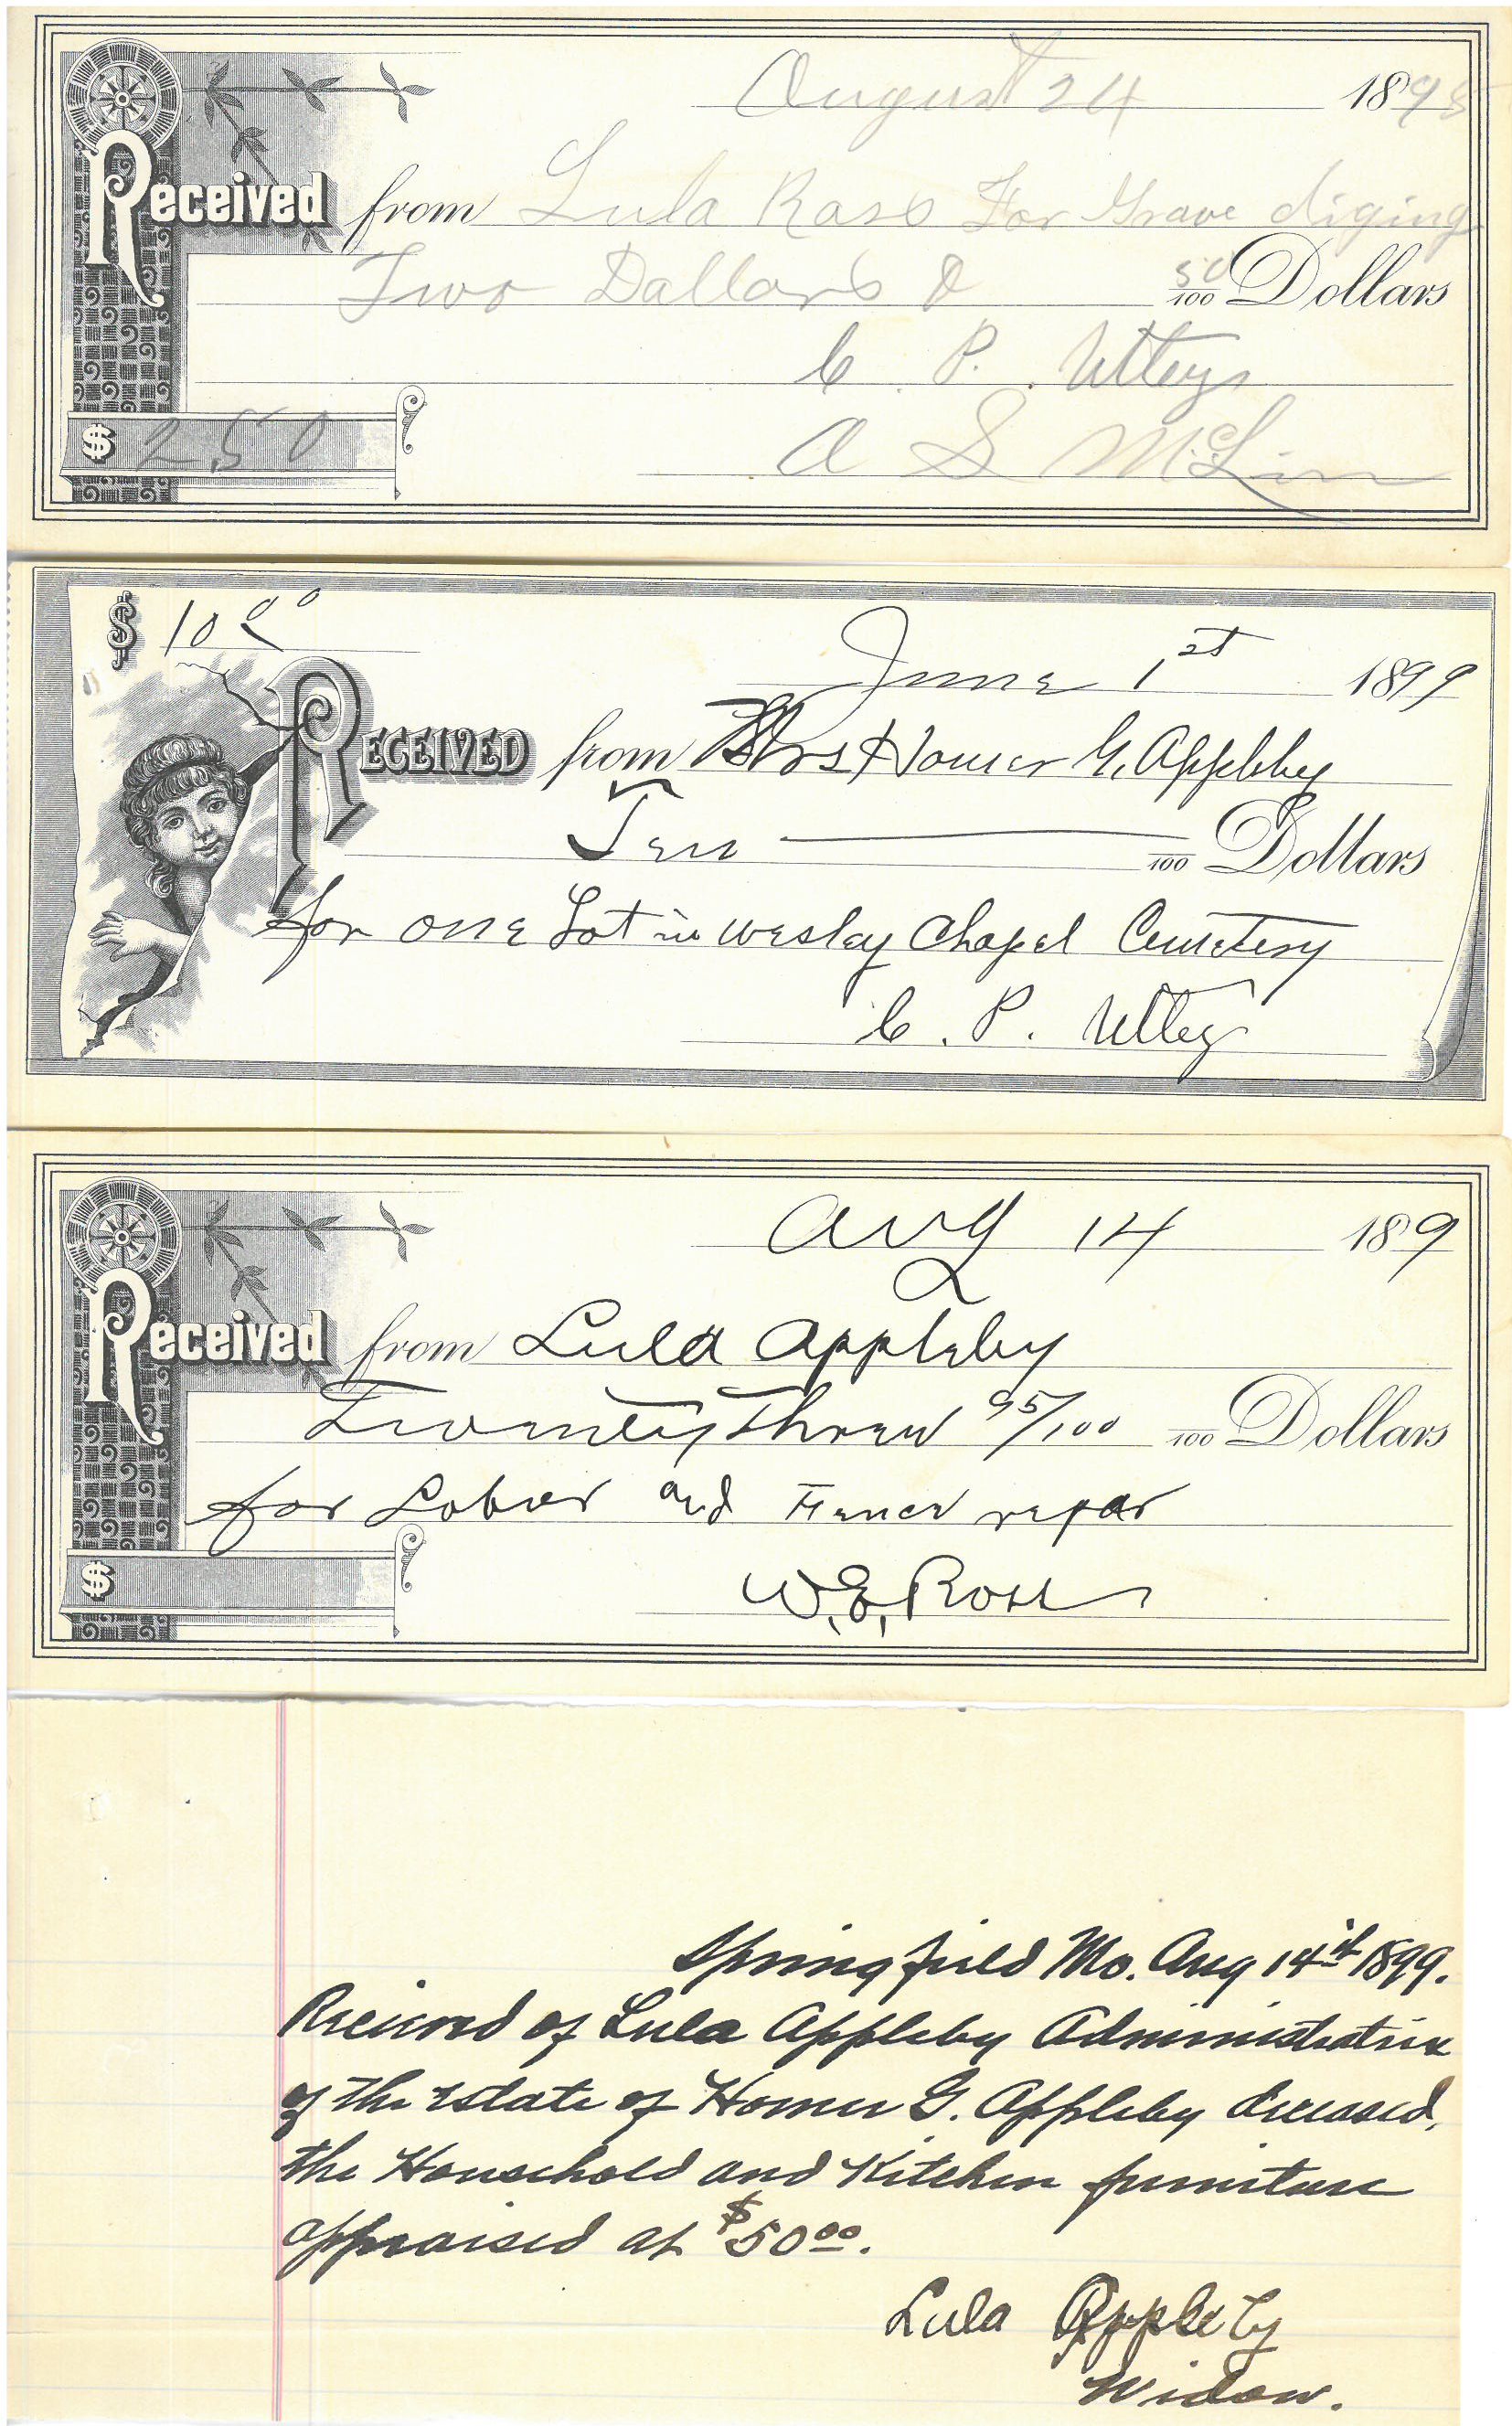 August 24 1898
Received from Lula Ross For Grave diging
Two Dollars & 50/100 Dollars
C. P. Utleys
$ 2.50 A S McLin
$ 10 00
June 1st 1899
Received from Mrs Homer G. Appleby
Ten /100 Dollars
for one Lot in Wesley Chapel Cemetery
C. P. Utley
Aug 14 189
Received from Lula Appleby
Twenty Three 95/100 /100 Dollars
for Labor and Fence repar
$
W. E. Ross
Springfield Mo. Aug 14th 1899.
Received of Lula Appleby Administratrix
of the Estate of Homer G. Appleby deceased,
the Household and Kitchen furniture
appraised at $50 00.
Lula Appleby
Widow.